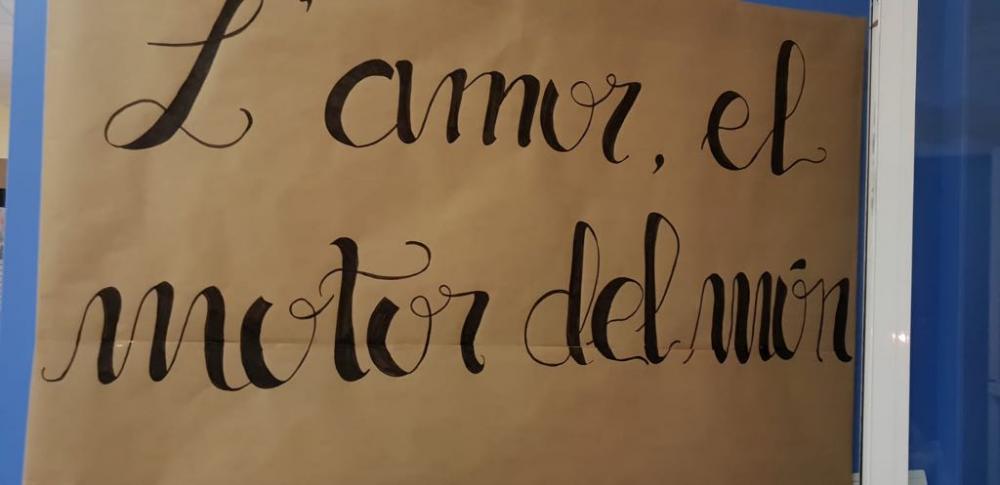 L'amor, el
motor del món